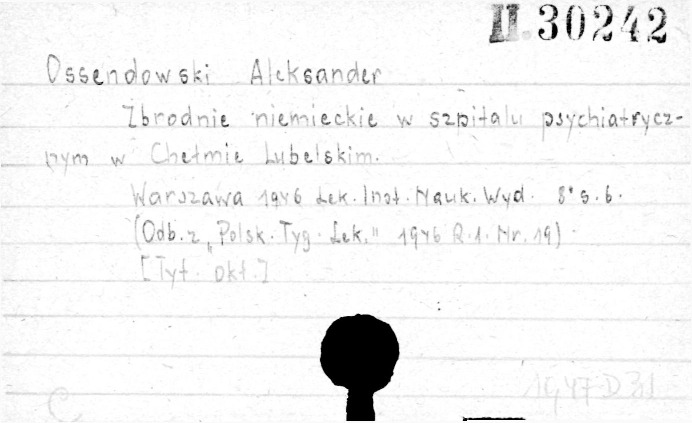 II. 30242
Ossendowski Aleksander
Zbrodnie niemieckie w szpitalu psychiatrycz-
nym w Chełmie Lubelskim.
Warszawa 1946 Lek. Inst. Nauk. Wyd. 8° s. 6.
(Odb. z „Polsk. Tyg. Lek." 1946 R. 1. Nr. 19)
[Tyt. okł.]
1947 D 31
C